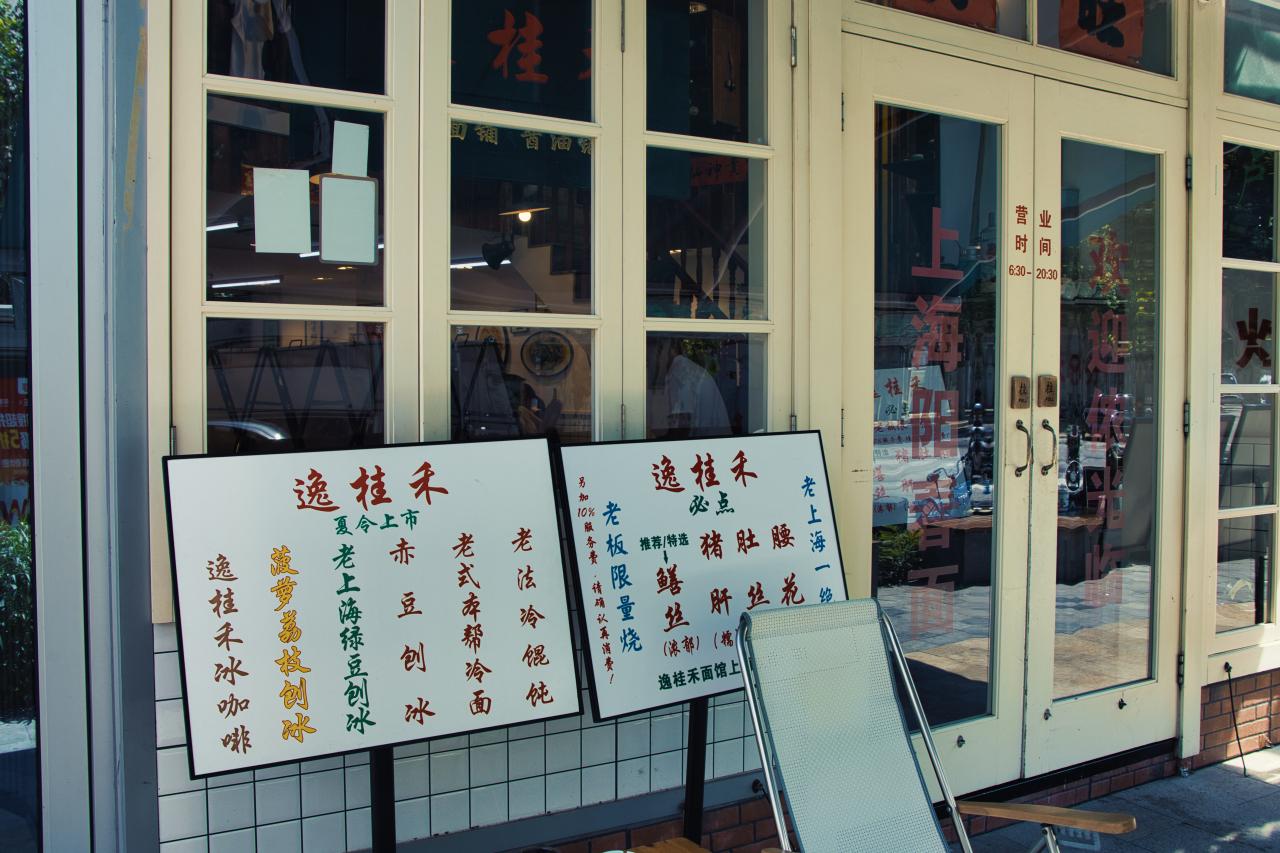 桂
逸桂禾
夏令上市
老法冷馄饨
老式本帮冷面
赤豆刨冰
老上海绿豆刨冰
菠萝荔枝刨冰
逸桂禾冰咖啡
逸桂禾
必点
老上海一绝
猪肚腰
肝丝花
推荐/特选
鳝丝
(浓郁)
老板限量烧
另加10%服务费,请确认再消费!
逸桂禾面馆上
营业
时间
6:30-20:30
上海阳春面
欢迎您光临
火